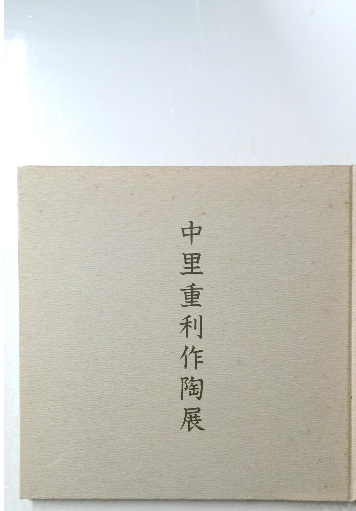 中里重利作陶展